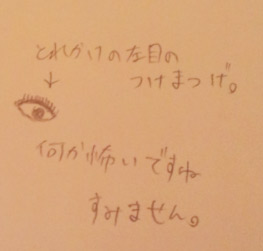 とれかけの左目の
つけまつげ。
何か怖いですね
すみません。